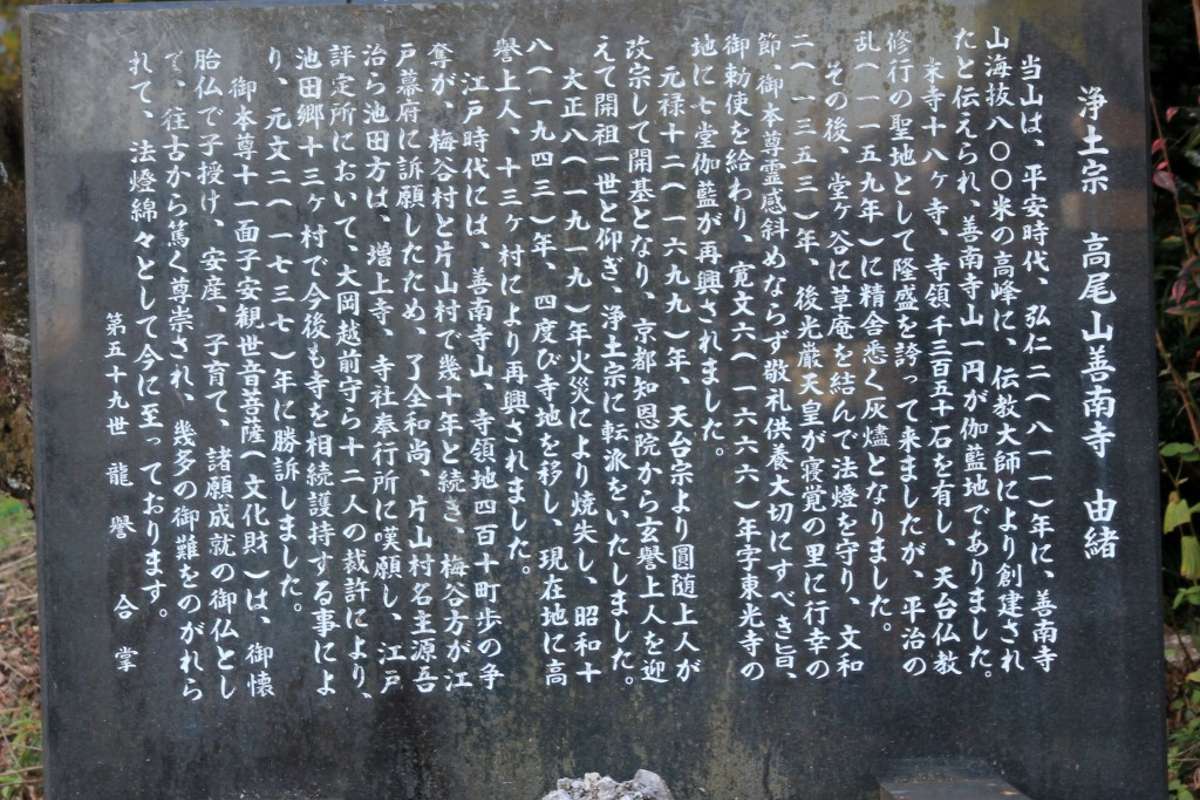 浄土宗　高尾山善南寺　由緒
当山は、平安時代、弘仁二(八一一)年に、善南寺
山海抜八〇〇米の高峰に、伝教大師により創建され
たと伝えられ、善南寺山一円が伽藍地でありました。
末寺十八ヶ寺、寺領千三百五十石を有し、天台仏教
修行の聖地として隆盛を誇って来ましたが、平治の
乱(一一五九年)に精舎悉く灰燼となりました。
その後、堂ヶ谷に草庵を結んで法燈を守り、文和
二(一三五三)年、後光厳天皇が寝覚の里に行幸の
節、御本尊霊感斜めならず敬礼供養大切にすべき旨、
御勅使を給わり、寛文六(一六六六)年字東光寺の
地に七堂伽藍が再興されました。
元禄十二(一六九九)年、天台宗より圓随上人が
改宗して開基となり、京都知恩院から玄誉上人を迎
えて開祖一世と仰ぎ、浄土宗に転派をいたしました。
大正八(一九一九)年火災により焼失し、昭和十
八(一九四三)年、四度び寺地を移し、現在地に高
譽上人、十三ヶ村により再興されました。
江戸時代には、善南寺山、寺領地四百十町歩の争
奪が、梅谷村と片山村で幾十年と続き、梅谷方が江
戸幕府に訴願したため、了全和尚、片山村名主源吾
治ら池田方は、増上寺、寺社奉行所に嘆願し、江戸
評定所において、大岡越前守ら十二人の裁許により、
池田郷十三ヶ村で今後も寺を相続護持する事によ
り、元文二(一七三七)年に勝訴しました。
御本尊十一面子安観世音菩薩(文化財)は、御懐
胎仏で子授け、安産、子育て、諸願成就の御仏とし
て、往古から篤く尊崇され、幾多の御難をのがれら
れて、法燈綿々として今に至っております。
第五十九世　龍譽　合掌